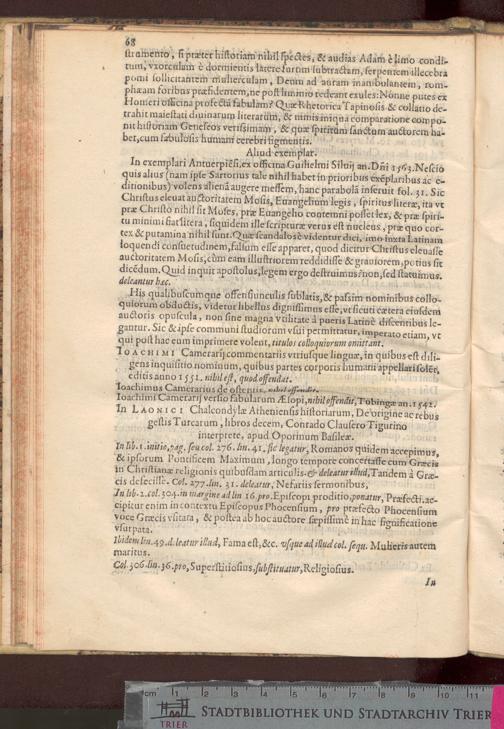 68
strumento, si præter historiam nihil spectes, & audias Adam è limo condi-
tum, vxorculam è dormientis latere furtim subtractam, serpentem illecebra
pomi sollicitantem mulierculam, Deum ad auram inambulantem, rom-
phæam foribus præsidentem, ne post liminio redeant exules: Nonne putes ex
Homeri officina profectā fabulam? Quæ Rhetorica Tapinosis & collatio de-
trahit maiestati diuinarum literarum, & nimis iniqua comparatione compo-
nit historiam Geneseos verissimam, & quæ spiritum sanctum auctorem ha-
bet, cum fabulosis humani cerebri figmentis.
Aliud exemplar.
In exemplari Antuerpiēsi, ex officina Guilielmi Siluij an. Dñi 1563. Nescio
quis alius (nam ipse Sartorius tale nihil habet in prioribus exēplaribus ac e-
ditionibus) volens alienā augere messem, hanc parabolā inseruit fol. 31. Sic
Christus eleuat auctoritatem Mosis, Euangelium legis, spiritus literæ, ita vt
præ Christo nihil sit Moses, præ Euangelio contemni posset lex, & præ spiri-
tu minimi fiat litera, siquidem ille scripturæ verus est nucleus, præ quo cor-
tex & putamina nihil sunt. Quæ scandalosè videntur dici, imo iuxta Latinam
loquendi consuetudinem, falsum esse apparet, quod dicitur Christus eleuasse
auctoritatem Mosis, cùm eam illustriorem reddidisse & grauiorem, potius sit
dicēdum. Quid inquit apostolus, legem ergo destruimus? non, sed statuimus.
deleantur hæc.
His qualibuscumque offensiunculis sublatis, & passim nominibus collo-
quiorum obductis, videtur libellus dignissimus esse, vt sicuti cætera eiusdem
auctoris opuscula, non sine magna vtilitate à pueris Latinè discentibus le-
gantur. Sic & ipse communi studiorum vsui permittatur, imperato etiam, vt
qui post hac eum imprimere volent, titulos colloquiorum omittant.
IOACHIMI Camerarij commentariis vtriusque linguæ, in quibus est dili-
gens inquisitio nominum, quibus partes corporis humani appellari solēt,
editis anno 1551. nihil est, quod offendat.
Ioachimus Camerarius de ostentis, nihil offendit.
Ioachimi Camerarij versio fabularum Æsopi, nihil offendit, Tubingæ an. 1542.
In LAONICI Chalcondylæ Atheniensis historiarum, De origine ac rebus
gestis Turcarum, libros decem, Conrado Clausero Tigurino
interprete, apud Oporinum Basileæ.
In lib. 1. initio, pag. seu col. 276. lin. 41. sic legatur, Romanos quidem accepimus,
& ipsorum Pontificem Maximum, longo tempore concertasse cum Græcis
in Christianæ religionis quibusdam articulis. & deleatur illud, Tandem à Græ-
cis defecisse. Col. 277. lin. 31. deleatur, Nefariis sermonibus,
In lib. 2. col. 304. in margine ad lin 16. pro. Episcopi proditio, ponatur, Præfecti. ac-
cipitur enim in contextu Episcopus Phocensium, pro præfecto Phocensium
voce Græcis vsitata, & postea ab hoc auctore sæpissimè in hac significatione
vsurpata.
Ibidem lin. 49. deleatur illud, Fama est, &c. vsque ad illud col. sequ. Mulieris autem
maritus.
Col. 306. lin. 36. pro, Superstitiosius. substituatur, Religiosius.
In
cm 1 2 3 4 5 6 7 8 9 10 11
TRIER
STADTBIBLIOTHEK UND STADTARCHIV TRIER